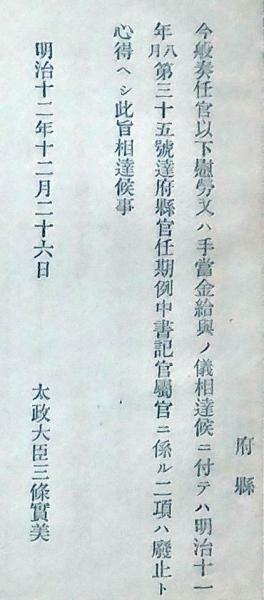 府縣
今般奏任官以下慰勞又ハ手當金給與ノ儀相達候ニ付テハ明治十一
年八月第三十五號達府縣官任期例中書記官屬官ニ係ル二項ハ廢止ト
心得ヘシ此旨相達候事
明治十二年十二月二十六日
太政大臣三條實美